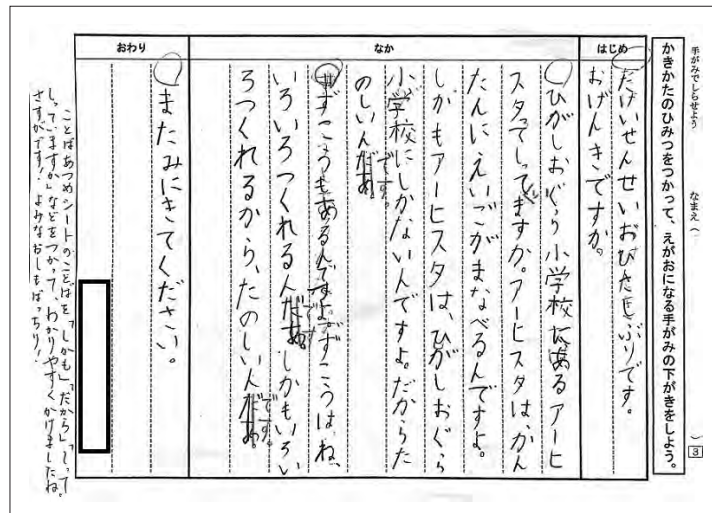 手がみでしらせよう　なまえ（　　）
3
かきかたのひみつをつかって、えがおになる手がみの下がきをしよう。
はじめ
たけいせんせいおひさしぶりです。
おげんきですか。
なか
ひがしおぐら小学校にあるアーヒ
スタってしってますか。アーヒスタは、かん
たんにえいごがまなべるんですよ。
しかもアーヒスタは、ひがしおぐら
小学校にしかないんですよ。だからた
のしいんです。
ずこうもあるんですよ。ずこうはね、
いろいろつくれるんです。しかもいろい
ろつくれるから、たのしいんです。
おわり
またみにきてください。
ことばあつめシートのことばを「しかも」「だから」「しって
しっていますか」などをつかって、わかりやすくかけましたね。
さすがです！よみなおしもばっちり！